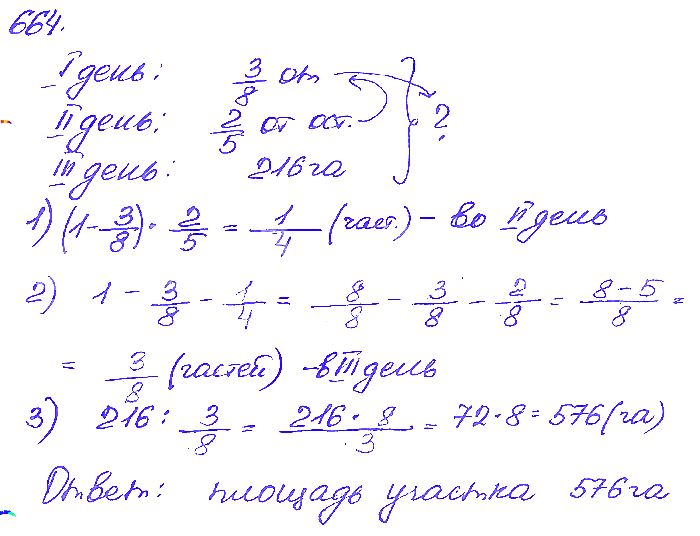 664.
I день: 3/8 от
II день: 2/5 от ост. ?
III день: 216 га
1) (1 - 3/8) · 2/5 = 1/4 (част.) - во II день
2) 1 - 3/8 - 1/4 = 8/8 - 3/8 - 2/8 = 8-5/8 =
= 3/8 (частей) - в III день
3) 216 : 3/8 = 216 · 8/3 = 72 · 8 = 576 (га)
Ответ: площадь участка 576 га